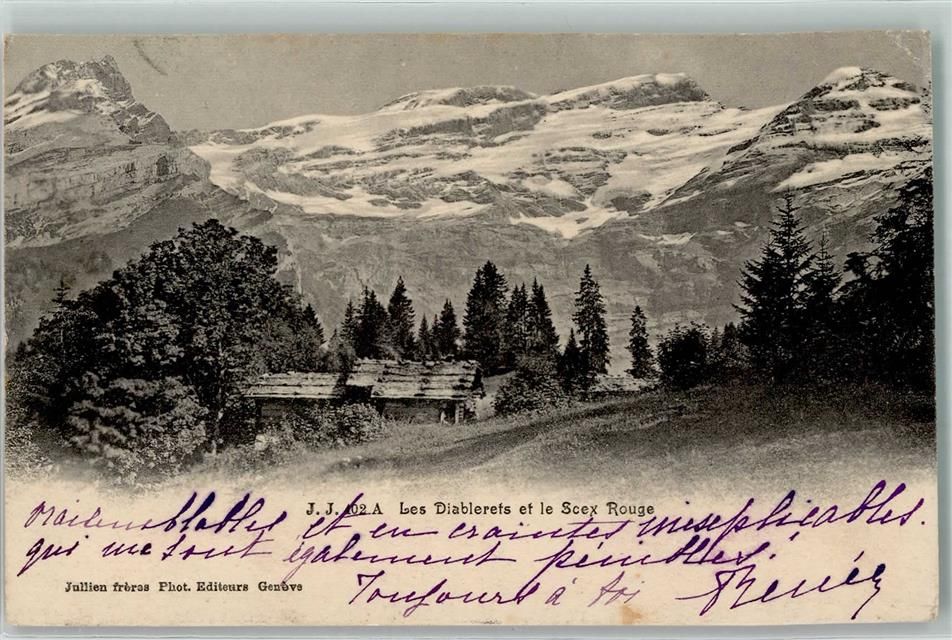 J. J. 102 A Les Diablerets et le Scex Rouge
vraisemblables et en craintes inexplicables.
qui me sont également pénibles!
Jullien frères Phot. Editeurs Genève
Toujours à toi Renée